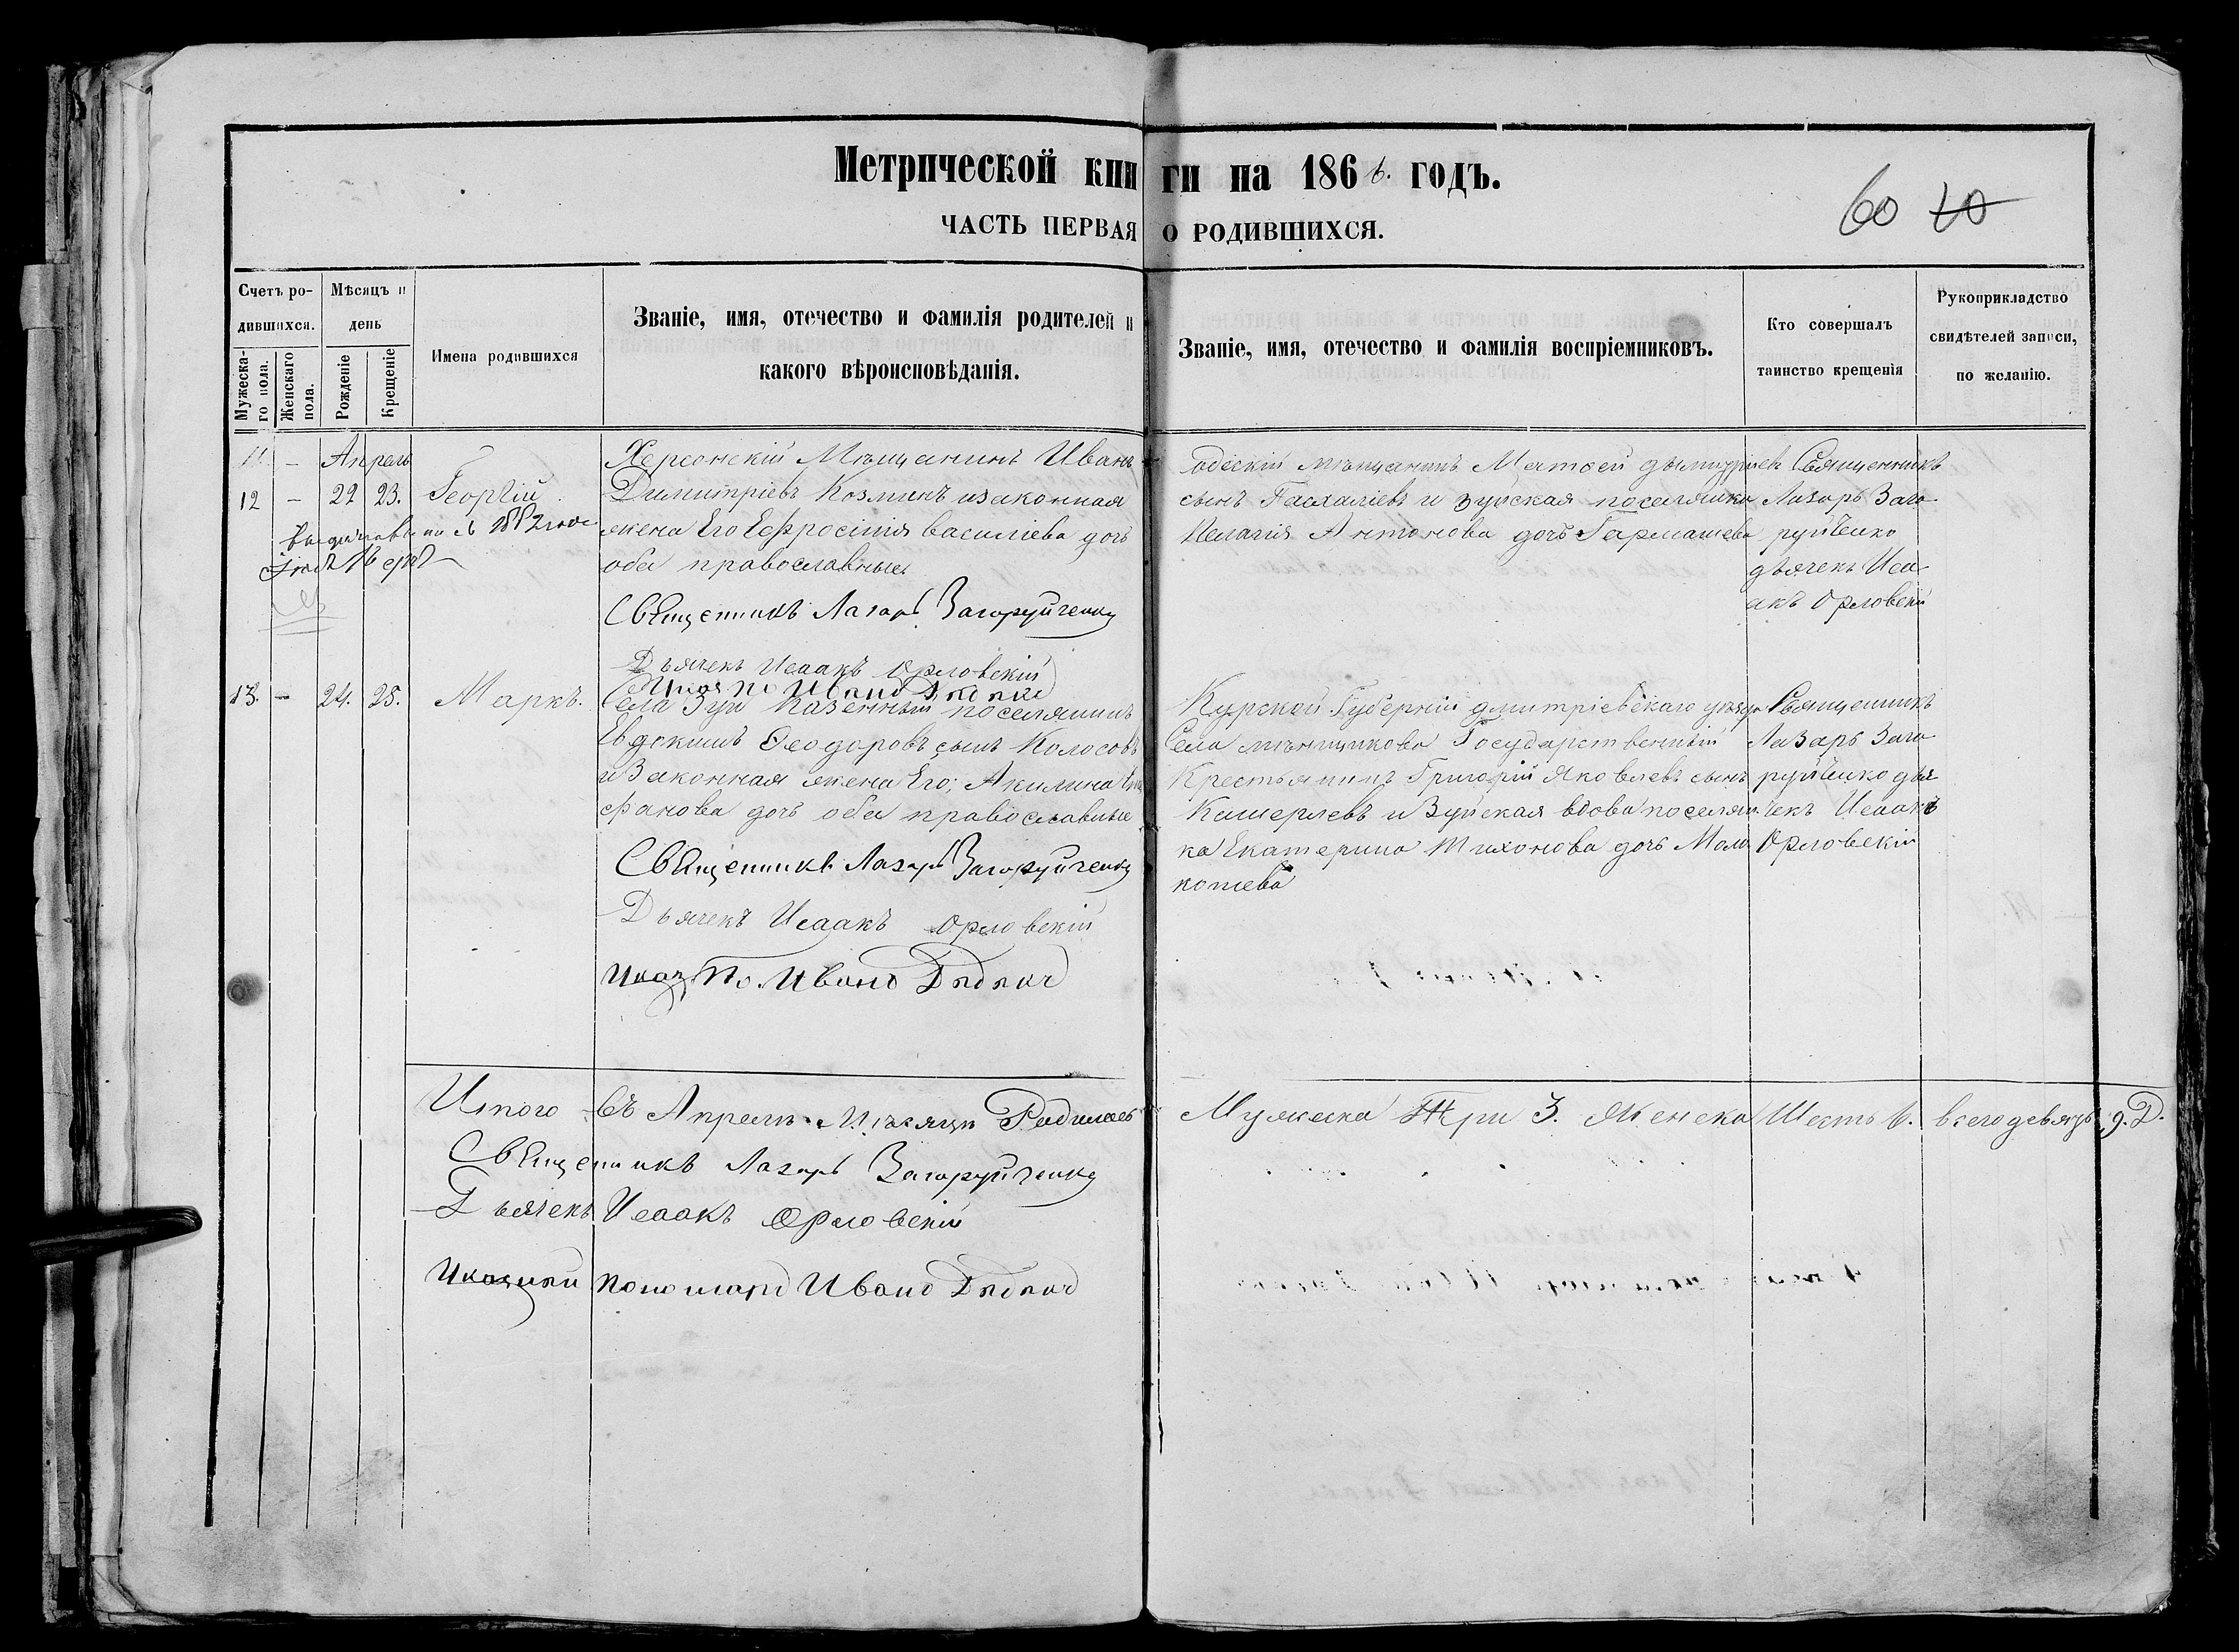 Метрической книги на 1866. годъ.
ЧАСТЬ ПЕРВАЯ О РОДИВШИХСЯ.
60 40
Счетъ родившихся.
Мужескаго пола.
Женскаго пола.
Мѣсяцъ и день
Рожденіе
Крещеніе
Имена родившихся
Званіе, имя, отечество и фамилія родителей и
какого вѣроисповѣданія.
Званіе, имя, отечество и фамилія воспріемниковъ.
Кто совершалъ
таинство крещенія
Рукоприкладство
свидѣтелей записи,
по желанію.
11. – Апрель
12 – 22 23. Георгій
Херсонскій Мѣщанинъ Иванъ
Димитріевъ Козминъ изаконная
жена Его Ефросинія василіева дочь
оба православные
Священникъ Лазарь Загоруйченко
Дьячекъ Исаакъ Орловскій
одескій мѣщанинъ Матвей дымитріевъ
сынъ Пасхаліевъ и зуйская поселянка
Пелагія Антонова дочь Гармашева
Священникъ
Лазарь Заго-
руйченко
дьячекъ Иса-
акъ Орловскій
13. – 24. 25. Маркъ.
Села Зуи Казенный поселянинъ
Евдокимъ Феодоровъ сынъ Колосовъ
и Законная жена Его; Акилина
фанова дочь оба православные
Священникъ Лазарь Загоруйченко
Дьячекъ Исаакъ Орловскій
По. Иванъ
Курской Губерній дмитріевскаго уезда
Села Государственный
Крестьянинъ Григорій Яковлевъ сынъ
и Зуйская вдова поселян-
ка Екатерина Тихонова дочь Моло
котева
Священникъ
Лазарь Заго
руйченко дья
чекъ Исаакъ
Орловскій
Итого въ Апреле Месяце Родилось Мужеска Три 3. Женска Шесть 6. всего девять 9. Д.
Священникъ Лазарь Загоруйченко
Дьячекъ Исаакъ Орловскій
пономарь Иванъ